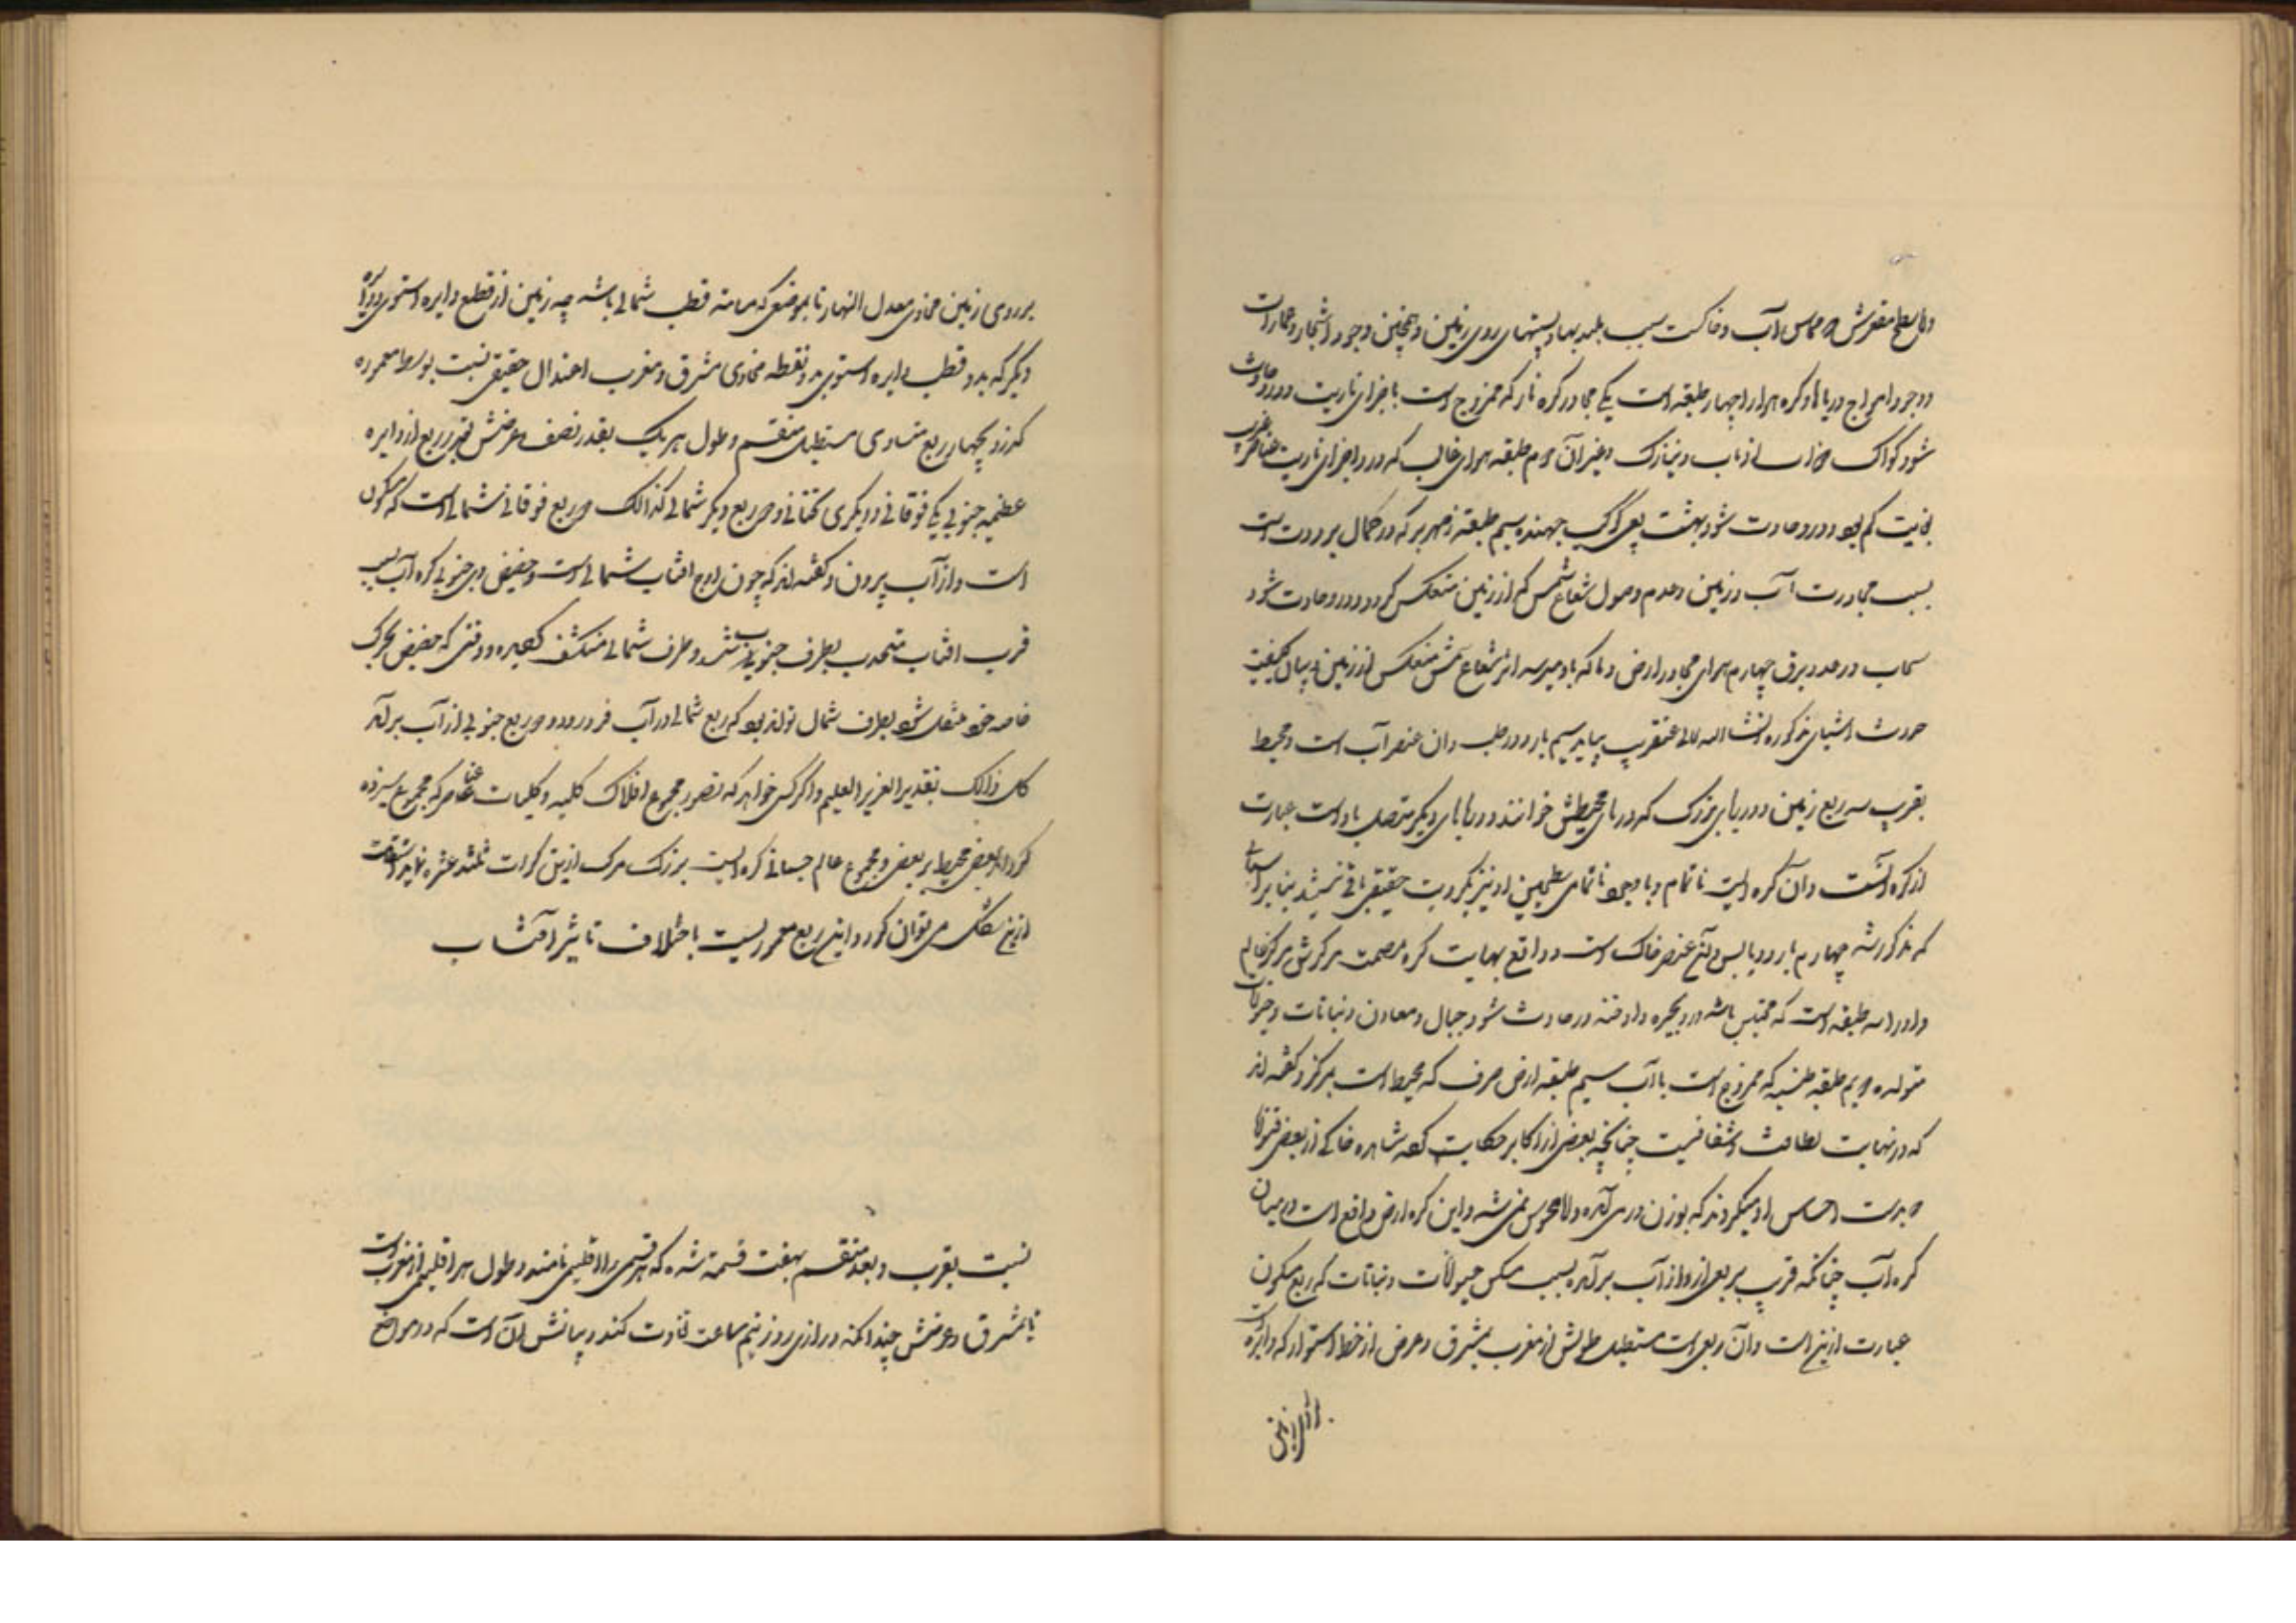 و اما سطح مقعرش که مماس آب و خاکست بسبب بلندیها و پستیهای روی زمین و همچنین وجود اشجار و عمارات
و وجود امواج دریاها و کره هوا را چهار طبقه است یکی مجاور کره نار که ممزوج است باجزای ناریت و درو حادث
شود کواکب ذوات اذناب و نیازک و غیر آن دوم طبقه هوای غالب که درو اجزای ناریت عناصر
بغایت کم بود و درو حادث شود شهب یعنی کواکب جهنده سیم طبقه زمهریر که در کمال برودت است
بسبب مجاورت آب و زمین و عدم وصول شعاع شمس که از زمین منعکس گردد و درو حادث شود
سحاب و رعد و برق چهارم هوای مجاور ارض و ما که باو میرسد اثر شعاع شمس منعکس از زمین و بیان کیفیت
حدوث اشیای مذکوره انشاء الله تعالی عنقریب بیاید سیم بارد و رطب و آن عنصر آب است و محیط
بقریب سه ربع زمین و دریای بزرک که دریای محیطش خوانند و دریاهای دیگر متصل باو است عبارت
ازوست و آن کره ایست ناتمام و با وجود ناتمامی سطحین او نیز بکرویت حقیقی باقی نمیشد بنابر اسبابی
که مذکور شد چهارم بارد و یابس و آن عنصر خاک است و در واقع بهایت کره مصمت مرکزش مرکز عالم
و او را سه طبقه است که محتبس باشد درو بخره و ادخنه و درو حادث شود جبال و معادن و نباتات و حیوانات
متولده دویم طبقه طینیه که ممزوج است با آب سیم طبقه ارض صرف که محیط است بمرکز و گفته اند
که در نهایت لطافت و شفافیت چنانچه بعضی از اکابر حکایت کرده مشاهده خاکی از بعضی
دست احساس او میکردند که بوزن در می آمده و لا محسوس نمی شد و این کره ارض واقع است در میان
کره آب چنانکه قریب بربعی ازو از آب برآمده بسبب مسکن حیوانات و نباتات که ربع مسکون
عبارت ازین است و آن ربعی است مستطیل طولش از مغرب بمشرق و عرض از خط استوا که دایره ایست
بر روی زمین محاذی معدل النهار تا بموضعی که مسامته قطب شمالی باشد چه زمین از قطع دایره استوا و دایره
دیگر که بدو قطب دایره استوا و بدو نقطه محاذی مشرق و مغرب اعتدال حقیقی نسبت بوسط معموره
گذرد بچهار ربع متساوی مستطیل منقسم و طول هر یک بقدر نصف و عرضش بقدر ربع از دایره
عظیمه جنوبی یکی فوقانی و دیگری تحتانی و دو ربع دیگر شمالی کذالک و ربع فوقانی شمالی است که مسکون
است و از آب بیرون و گفته اند که چون اوج افتاب شمالی است و حضیض وی جنوبی کره آب بسبب
قرب افتاب متحدب بطرف جنوبی شد و طرف شمالی منکشف گردیده و وقتی که حضیض بحرکت
خاصه خود منتقل شود بطرف شمال تواند بود که ربع شمالی در آب فرو رود و ربع جنوبی از آب برآید
کل ذالک بتقدیر العزیز العلیم و اگر کسی خواهد که تصور مجموع افلاک کلیه و کلیات عناصر که مجموع سیزده
کره اند بعضی محیط بر بعضی و مجموع عالم جسمانی کره ایست بزرک مرکب ازین کرات ثلثه عشر نماید استقامت
ازین شکل می توان کرد و این ربع معمور نیست باختلاف تاثیر آفتاب
نسبت بقرب و بعد منقسم بهفت قسمت شده که هر قسمی را اقلیمی نامند و طول هر اقلیمی از مغرب است
تا مشرق و عرضش چندانکه درازی روز نیم ساعت تفاوت کند و بیانش آن است که در مواضع